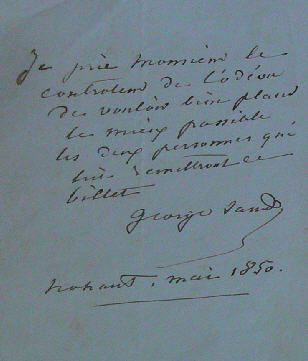 Je prie monsieur le
controleur de l'odéon
de vouloir bien placer
le mieux possible
les deux personnes qui
lui remettront ce
billet
George Sand
nohant. mai 1850.